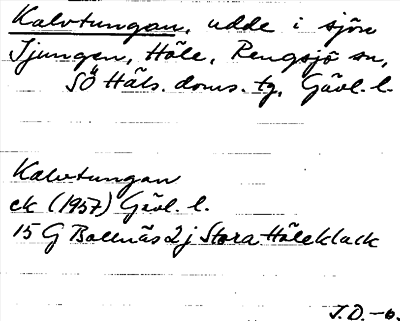 Kalvtungan, udde i sjön
Tjungen, Höle, Rengsjö sn,
SÖ Häls. doms. tg, Gävl. l.
Kalvtungan
ek (1957) Gävl. l.
15 G Bollnäs 2 j Stora Höleklack
J.D.-6.